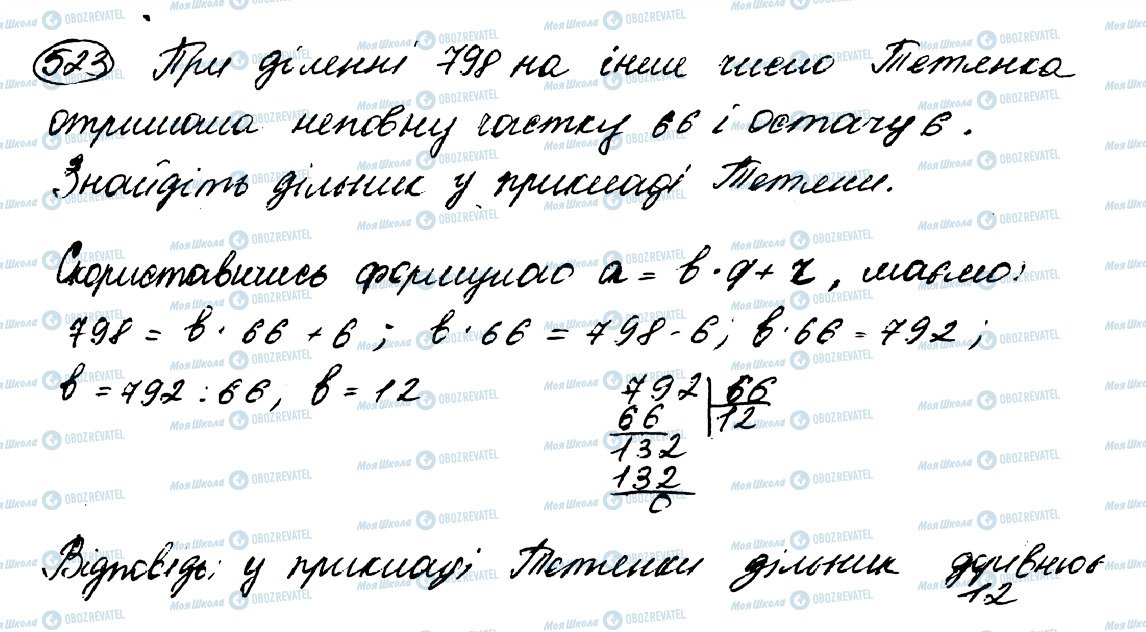 523 При діленні 798 на інше число Тетянка
отримала неповну частку 66 і остачу 6.
Знайдіть дільник у прикладі Тетяни.
Скориставшись формулою a = b · q + r, маємо:
798 = b · 66 + 6; b · 66 = 798 - 6; b · 66 = 792;
b = 792 : 66, b = 12
792 66
66 12
132
132
0
Відповідь: у прикладі Тетянки дільник дорівнює
12